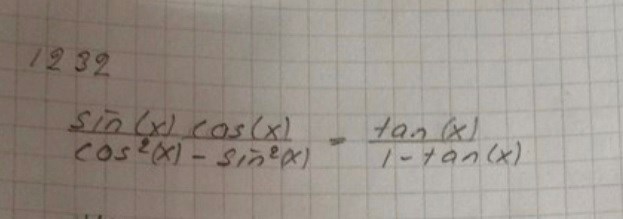 1232
sin(x) cos(x) / cos²(x) - sin²(x) = tan(x) / 1 - tan(x)